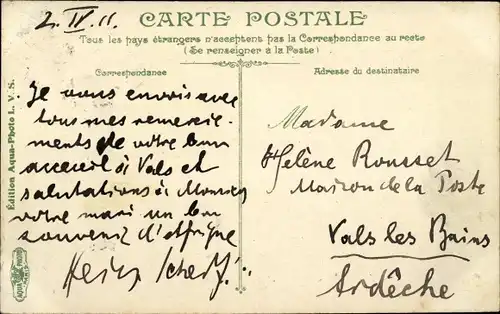 2. IV. 11.
CARTE POSTALE
Tous les pays étrangers n'acceptent pas la Correspondance au recto
(Se renseigner à la Poste)
Correspondance
Adresse du destinataire
Je vous envois avec
tous mes remercie-
ments de votre bon
accueil à Vals et
salutations à Monsieur
votre mari un bon
souvenir d'Afrique
Madame
Hélène Rousset
Maison de la Poste
Vals les Bains
Ardêche
Édition Aqua-Photo L. V. S.
AQUA PHOTO